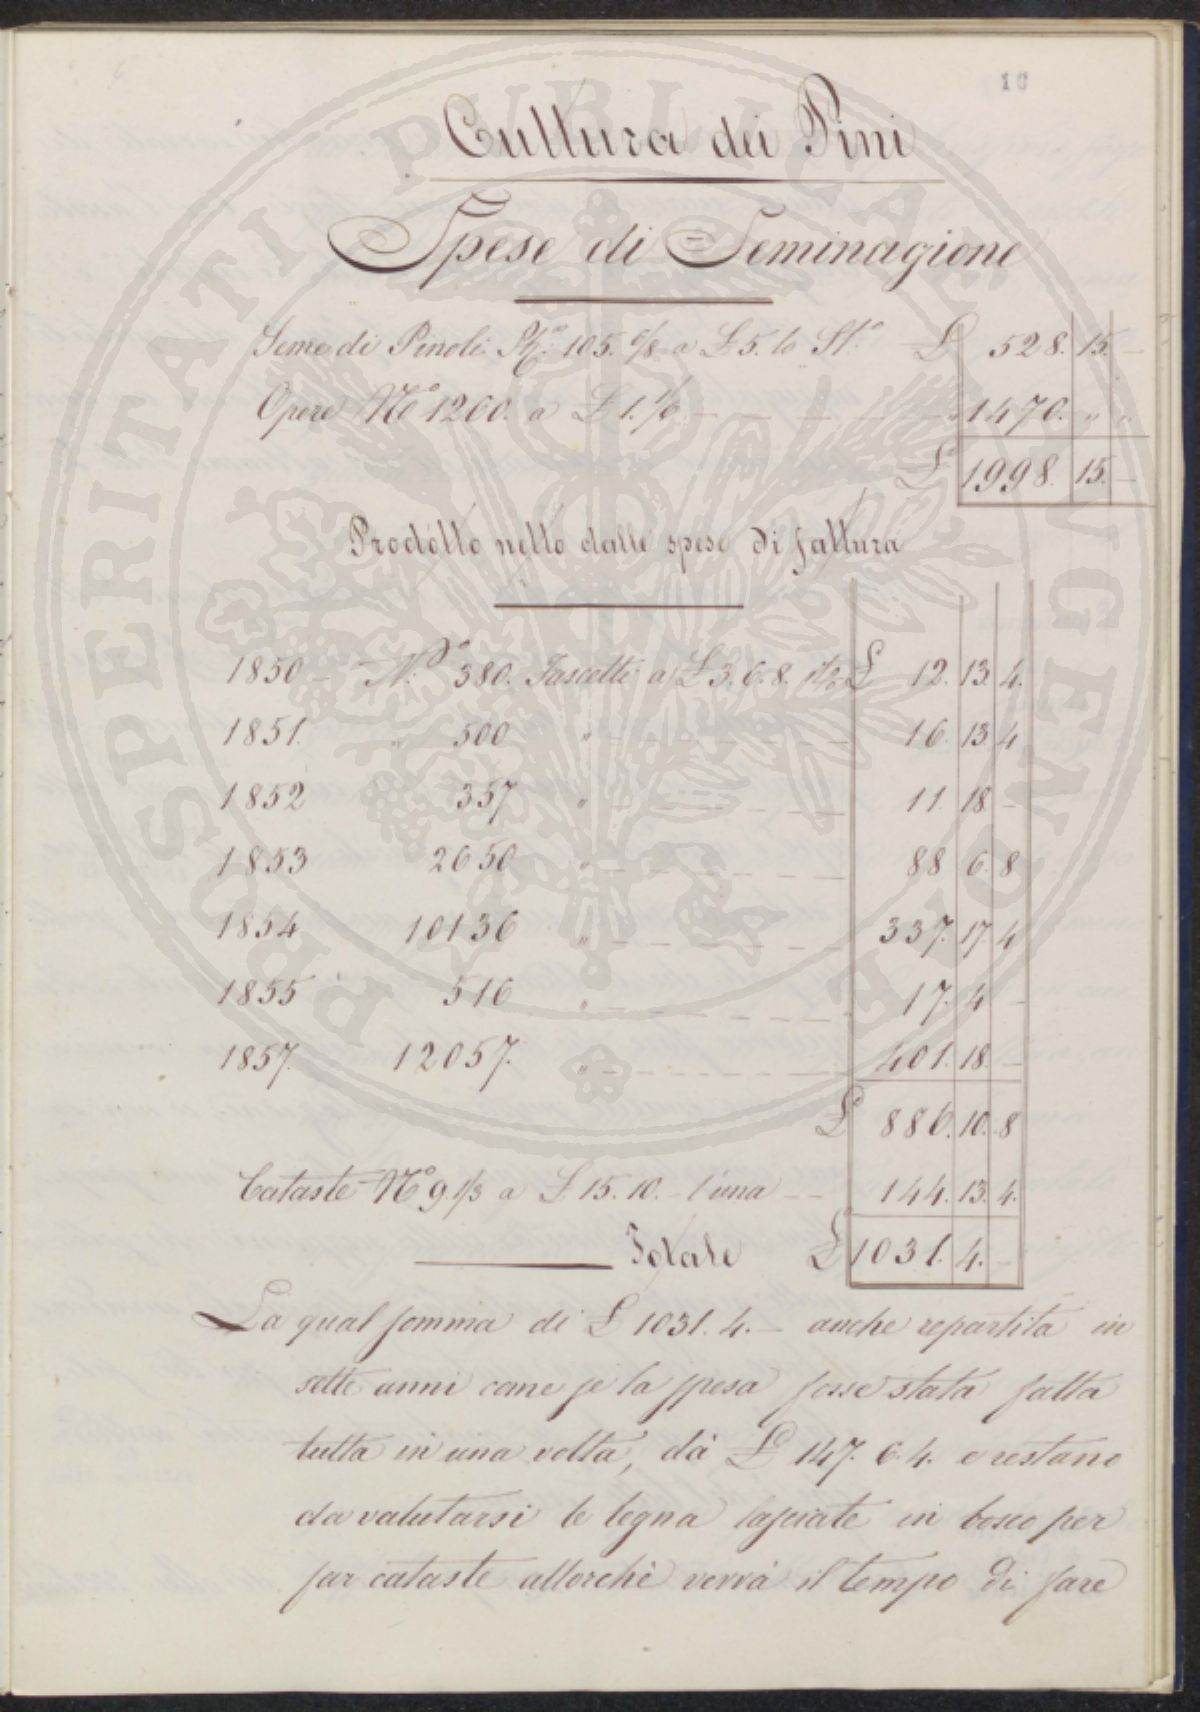 10
Cultura dei Pini
Spese di Seminagione
Seme di Pinoli 105. 6/8 a £ 5. lo St.º £ 528. 15. –
Opere Nº 1260. a £ 1. 1/6 – – – – 1470. " "
£ 1998. 15. –
Prodotto netto dalle spese di fattura
1850 – N.º 380. Fascetti a £ 3. 6. 8. il % £ 12. 13. 4.
1851. " 500 " – – – – 16. 13. 4
1852 357 " – – – – 11. 18 –
1853 2650 " – – – – 88 6. 8
1854 10136 " – – – – 337. 17. 4
1855 516 " – – – – 17. 4 –
1857. 12057. " – – – – 401. 18. –
£ 886. 10. 8
Cataste Nº 9 1/3 a £ 15. 10. – l'una – – 144. 13. 4.
Totale £ 1031. 4. –
La qual somma di £ 1031. 4. – anche repartita in
sette anni come se la spesa fosse stata fatta
tutta in una volta, dà £ 147. 6. 4. e restano
da valutarsi le legna lasciate in bosco per
far cataste allorchè verrà il tempo di fare
PROSPERITATI PUBLICAE AUGENDAE